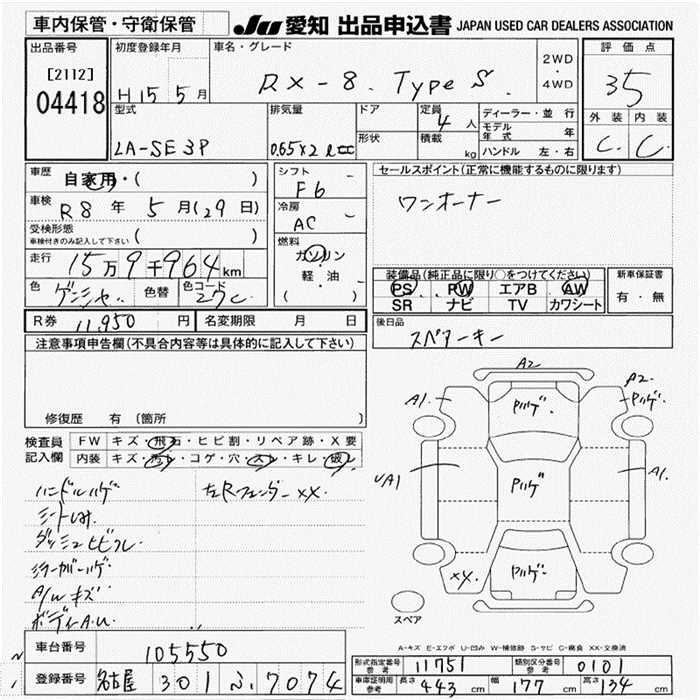 車内保管・守衛保管 JU 愛知 出品申込書 JAPAN USED CAR DEALERS ASSOCIATION
出品番号 初度登録年月 車名・グレード 評価点
[2112] H15年 5月 RX-8. Type S. 2WD・4WD 35
04418
型式 排気量 ドア 定員 4人 ディーラー・並行 外装 内装
LA-SE3P 0.65×2 ℓ 形状 積載 kg モデル年式 年 C. C.
ハンドル 左・右
車歴 自家用・( ) シフト F6 セールスポイント(正常に機能するものに限ります)
車検 R8年 5月(29日) 冷房 AC ワンオーナー
受検形態 車検付きのみ記入して下さい ( )
走行 15万9千964km 燃料 ガソリン 軽・油 ( )
装備品(純正品に限り○をつけてください) 新車保証書
色 色替 色コード 27C PS PW エアB AW 有・無
SR ナビ TV カワシート
R券 11,950円 名変期限 月 日 後日品
スペアーキー
注意事項申告欄(不具合内容等は具体的に記入して下さい)
修復歴 有 (箇所 )
検査員記入欄 FW キズ・飛石・ヒビ割・リペア跡・X要
内装 キズ・汚レ・コゲ・穴・スレ・キレ・破レ
ハンドルハゲ 左Rフェンダー XX.
ダッシュ
ミラーカバーハゲ
A/W キズ
ボディA.U.
A2
A1. A2.
UA1 A1.
XX.
スペア
A-キズ E-エクボ U-凹み W-補修跡 S-サビ C-腐食 XX-交換済
車台番号 105550
登録番号 名古屋 301 ふ 7074
形式指定番号 参考 11751 類別区分番号 参考 0101
車庫証明用 参考 長さ 443cm 幅 177cm 高さ 134cm